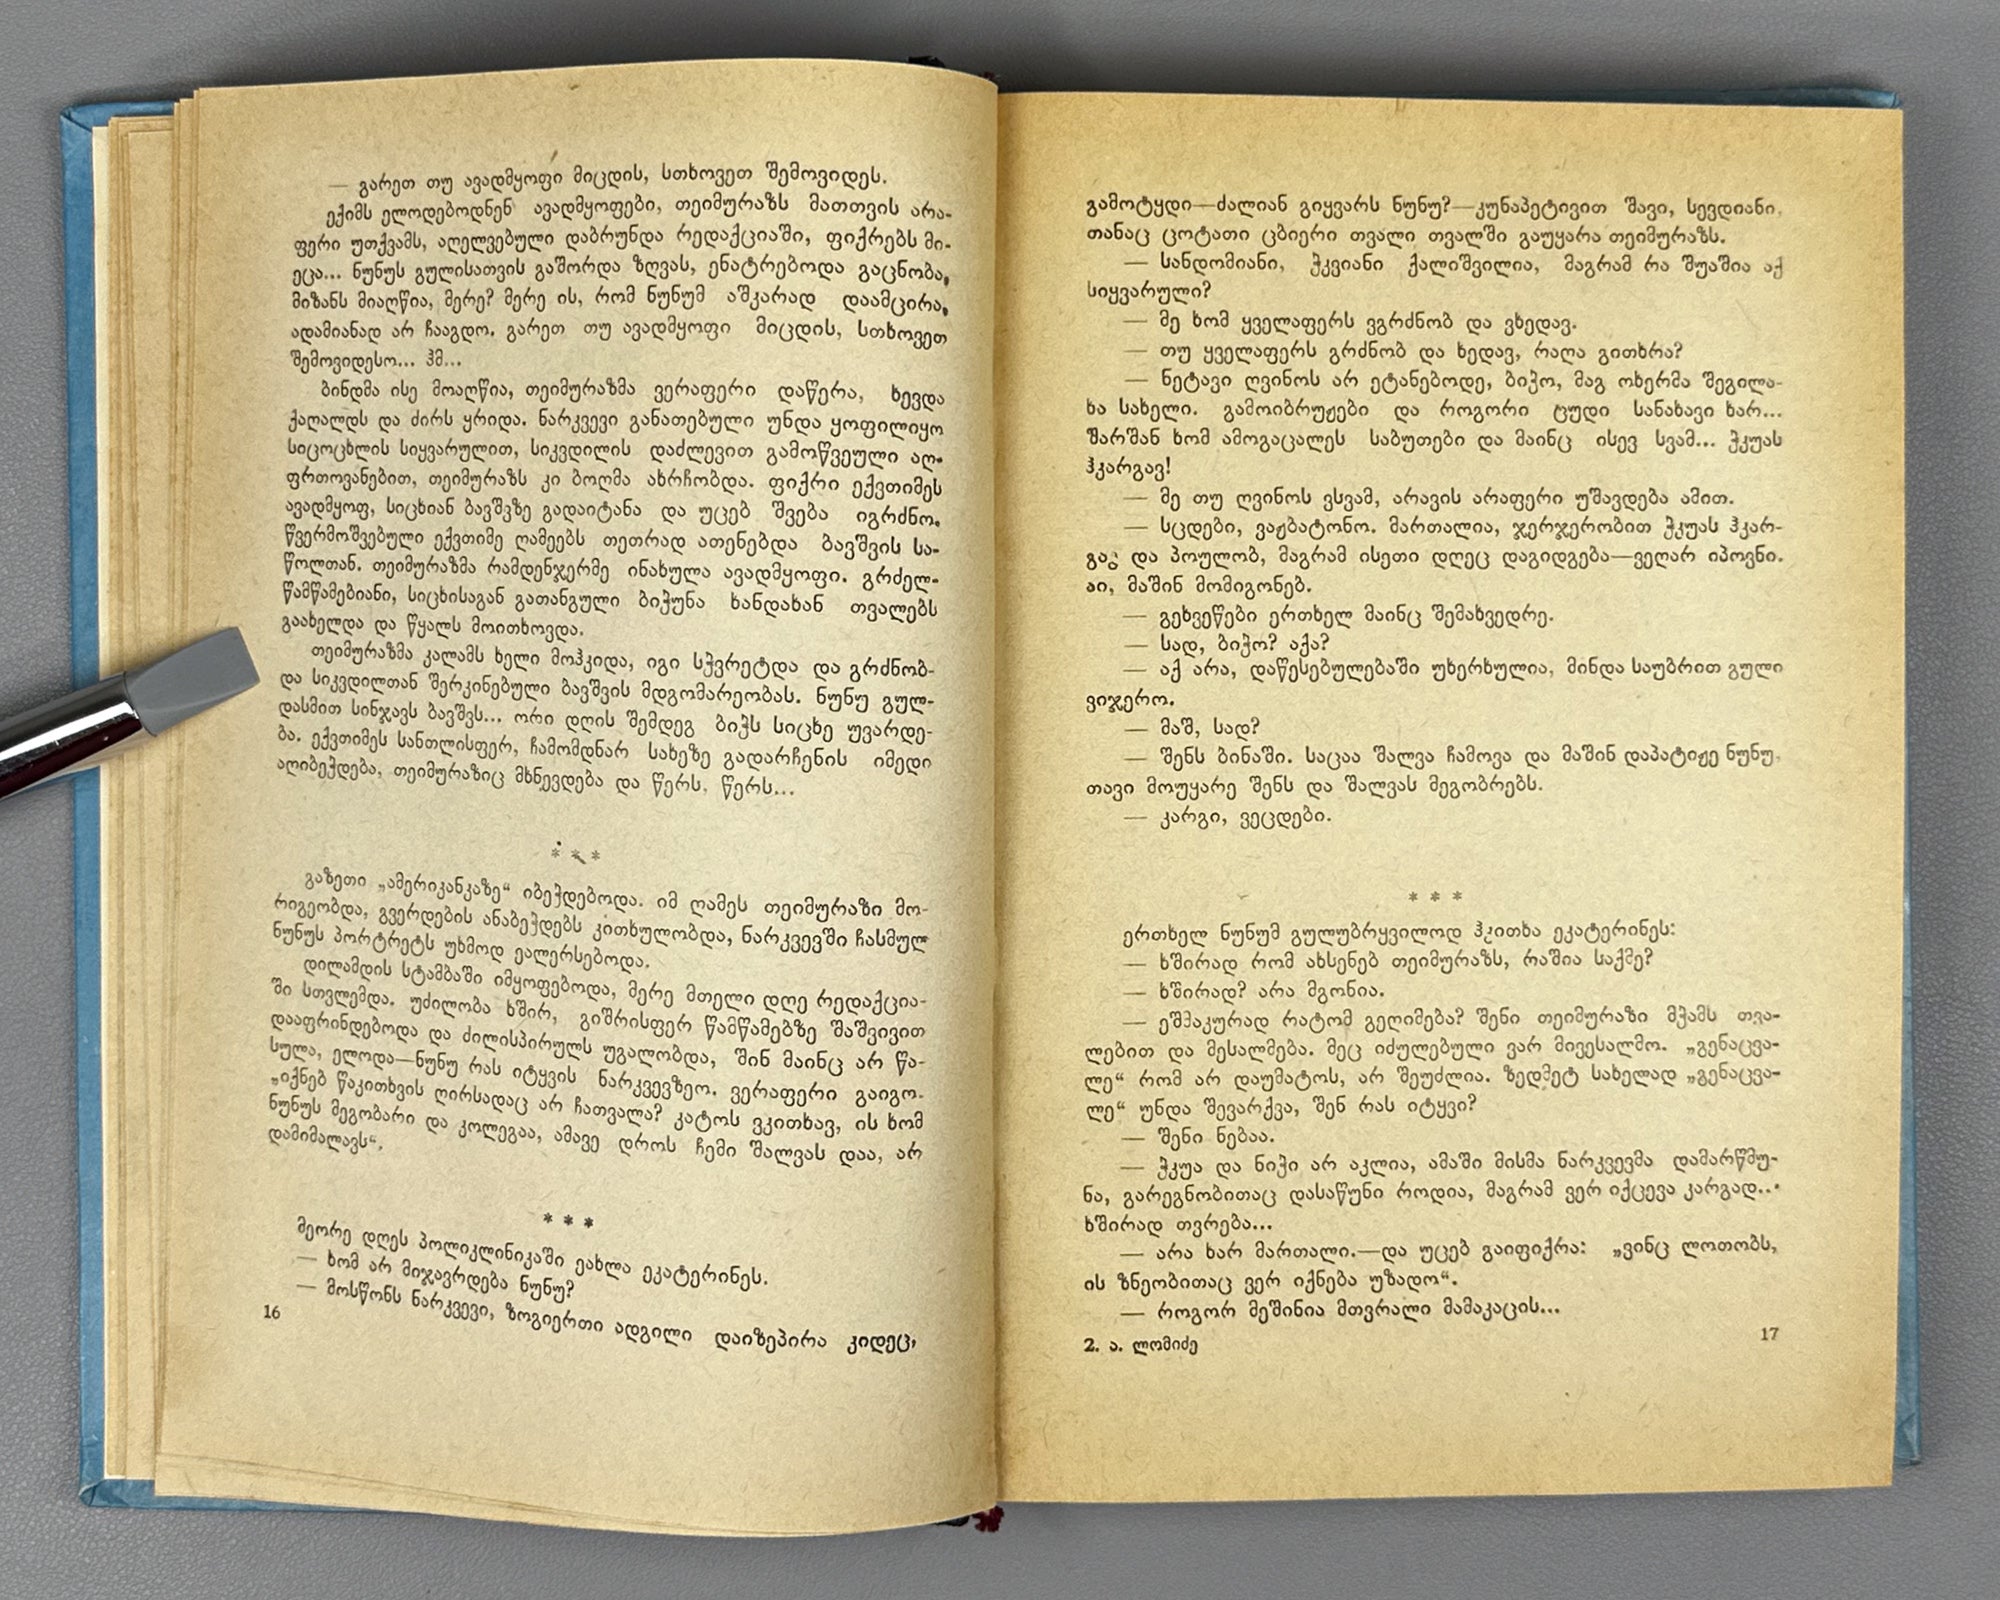 — გარეთ თუ ავადმყოფი მიცდის, სთხოვეთ შემოვიდეს.
ექიმს ელოდებოდნენ ავადმყოფები, თეიმურაზს მათთვის არა-
ფერი უთქვამს, აღელვებული დაბრუნდა რედაქციაში, ფიქრებს მი-
ეცა... ნუნუს გულისათვის გაშორდა ზღვას, ენატრებოდა გაცნობა,
მიზანს მიაღწია, მერე? მერე ის, რომ ნუნუმ აშკარად დაამცირა,
ადამიანად არ ჩააგდო. გარეთ თუ ავადმყოფი მიცდის, სთხოვეთ
შემოვიდესო... ჰმ...
ბინდმა ისე მოაღწია, თეიმურაზმა ვერაფერი დაწერა, ხევდა
ქაღალდს და ძირს ყრიდა. ნარკვევი განათებული უნდა ყოფილიყო
სიცოცხლის სიყვარულით, სიკვდილის დაძლევით გამოწვეული აღ-
ფრთოვანებით, თეიმურაზს კი ბოღმა ახრჩობდა. ფიქრი ექვთიმეს
ავადმყოფ, სიცხიან ბავშვზე გადაიტანა და უცებ შვება იგრძნო.
წვერმოშვებული ექვთიმე ღამეებს თეთრად ათენებდა ბავშვის სა-
წოლთან. თეიმურაზმა რამდენჯერმე ინახულა ავადმყოფი. გრძელ-
წამწამებიანი, სიცხისაგან გათანგული ბიჭუნა ხანდახან თვალებს
გაახელდა და წყალს მოითხოვდა.
თეიმურაზმა კალამს ხელი მოჰკიდა, იგი სჭვრეტდა და გრძნობ-
და სიკვდილთან შერკინებული ბავშვის მდგომარეობას. ნუნუ გულ-
დასმით სინჯავს ბავშვს... ორი დღის შემდეგ ბიჭს სიცხე უვარდე-
ბა. ექვთიმეს სანთლისფერ, ჩამომდნარ სახეზე გადარჩენის იმედი
აღიბეჭდება, თეიმურაზიც მხნევდება და წერს, წერს...
* * *
გაზეთი „ამერიკანკაზე“ იბეჭდებოდა. იმ ღამეს თეიმურაზი მო-
რიგეობდა, გვერდების ანაბეჭდებს კითხულობდა, ნარკვევში ჩასმულ
ნუნუს პორტრეტს უხმოდ ეალერსებოდა.
დილამდის სტამბაში იმყოფებოდა, მერე მთელი დღე რედაქცია-
ში სთვლემდა. უძილობა ხშირ, გიშრისფერ წამწამებზე შაშვივით
დააფრინდებოდა და ძილისპირულს უგალობდა, შინ მაინც არ წა-
სულა, ელოდა—ნუნუ რას იტყვის ნარკვევზეო. ვერაფერი გაიგო.
„იქნებ წაკითხვის ღირსადაც არ ჩათვალა? კატოს ვკითხავ, ის ხომ
ნუნუს მეგობარი და კოლეგაა, ამავე დროს ჩემი შალვას დაა, არ
დამიმალავს“.
* * *
მეორე დღეს პოლიკლინიკაში ეახლა ეკატერინეს.
— ხომ არ მიჯავრდება ნუნუ?
— მოსწონს ნარკვევი, ზოგიერთი ადგილი დაიზეპირა კიდეც,
16
გამოტყდი—ძალიან გიყვარს ნუნუ?—კუნაპეტივით შავი, სევდიანი,
თანაც ცოტათი ცბიერი თვალი თვალში გაუყარა თეიმურაზს.
— სანდომიანი, ჭკვიანი ქალიშვილია, მაგრამ რა შუაშია აქ
სიყვარული?
— მე ხომ ყველაფერს ვგრძნობ და ვხედავ.
— თუ ყველაფერს გრძნობ და ხედავ, რაღა გითხრა?
— ნეტავი ღვინოს არ ეტანებოდე, ბიჭო, მაგ ოხერმა შეგილა-
ხა სახელი. გამოიბრუჟები და როგორი ცუდი სანახავი ხარ...
შარშან ხომ ამოგაცალეს საბუთები და მაინც ისევ სვამ... ჭკუას
ჰკარგავ!
— მე თუ ღვინოს ვსვამ, არავის არაფერი უშავდება ამით.
— სცდები, ვაჟბატონო. მართალია, ჯერჯერობით ჭკუას ჰკარ-
გავ და პოულობ, მაგრამ ისეთი დღეც დაგიდგება—ვეღარ იპოვნი.
აი, მაშინ მომიგონებ.
— გეხვეწები ერთხელ მაინც შემახვედრე.
— სად, ბიჭო? აქა?
— აქ არა, დაწესებულებაში უხერხულია, მინდა საუბრით გული
ვიჯერო.
— მაშ, სად?
— შენს ბინაში. საცაა შალვა ჩამოვა და მაშინ დაპატიჟე ნუნუ,
თავი მოუყარე შენს და შალვას მეგობრებს.
— კარგი, ვეცდები.
* * *
ერთხელ ნუნუმ გულუბრყვილოდ ჰკითხა ეკატერინეს:
— ხშირად რომ ახსენებ თეიმურაზს, რაშია საქმე?
— ხშირად? არა მგონია.
— ეშმაკურად რატომ გეღიმება? შენი თეიმურაზი მჭამს თვა-
ლებით და მესალმება. მეც იძულებული ვარ მივესალმო. „გენაცვა-
ლე“ რომ არ დაუმატოს, არ შეუძლია. ზედმეტ სახელად „გენაცვა-
ლე“ უნდა შევარქვა, შენ რას იტყვი?
— შენი ნებაა.
— ჭკუა და ნიჭი არ აკლია, ამაში მისმა ნარკვევმა დამარწმუ-
ნა, გარეგნობითაც დასაწუნი როდია, მაგრამ ვერ იქცევა კარგად...
ხშირად თვრება...
— არა ხარ მართალი.—და უცებ გაიფიქრა: „ვინც ლოთობს,
ის ზნეობითაც ვერ იქნება უზადო“.
— როგორ მეშინია მთვრალი მამაკაცის...
2. ა. ლომიძე
17